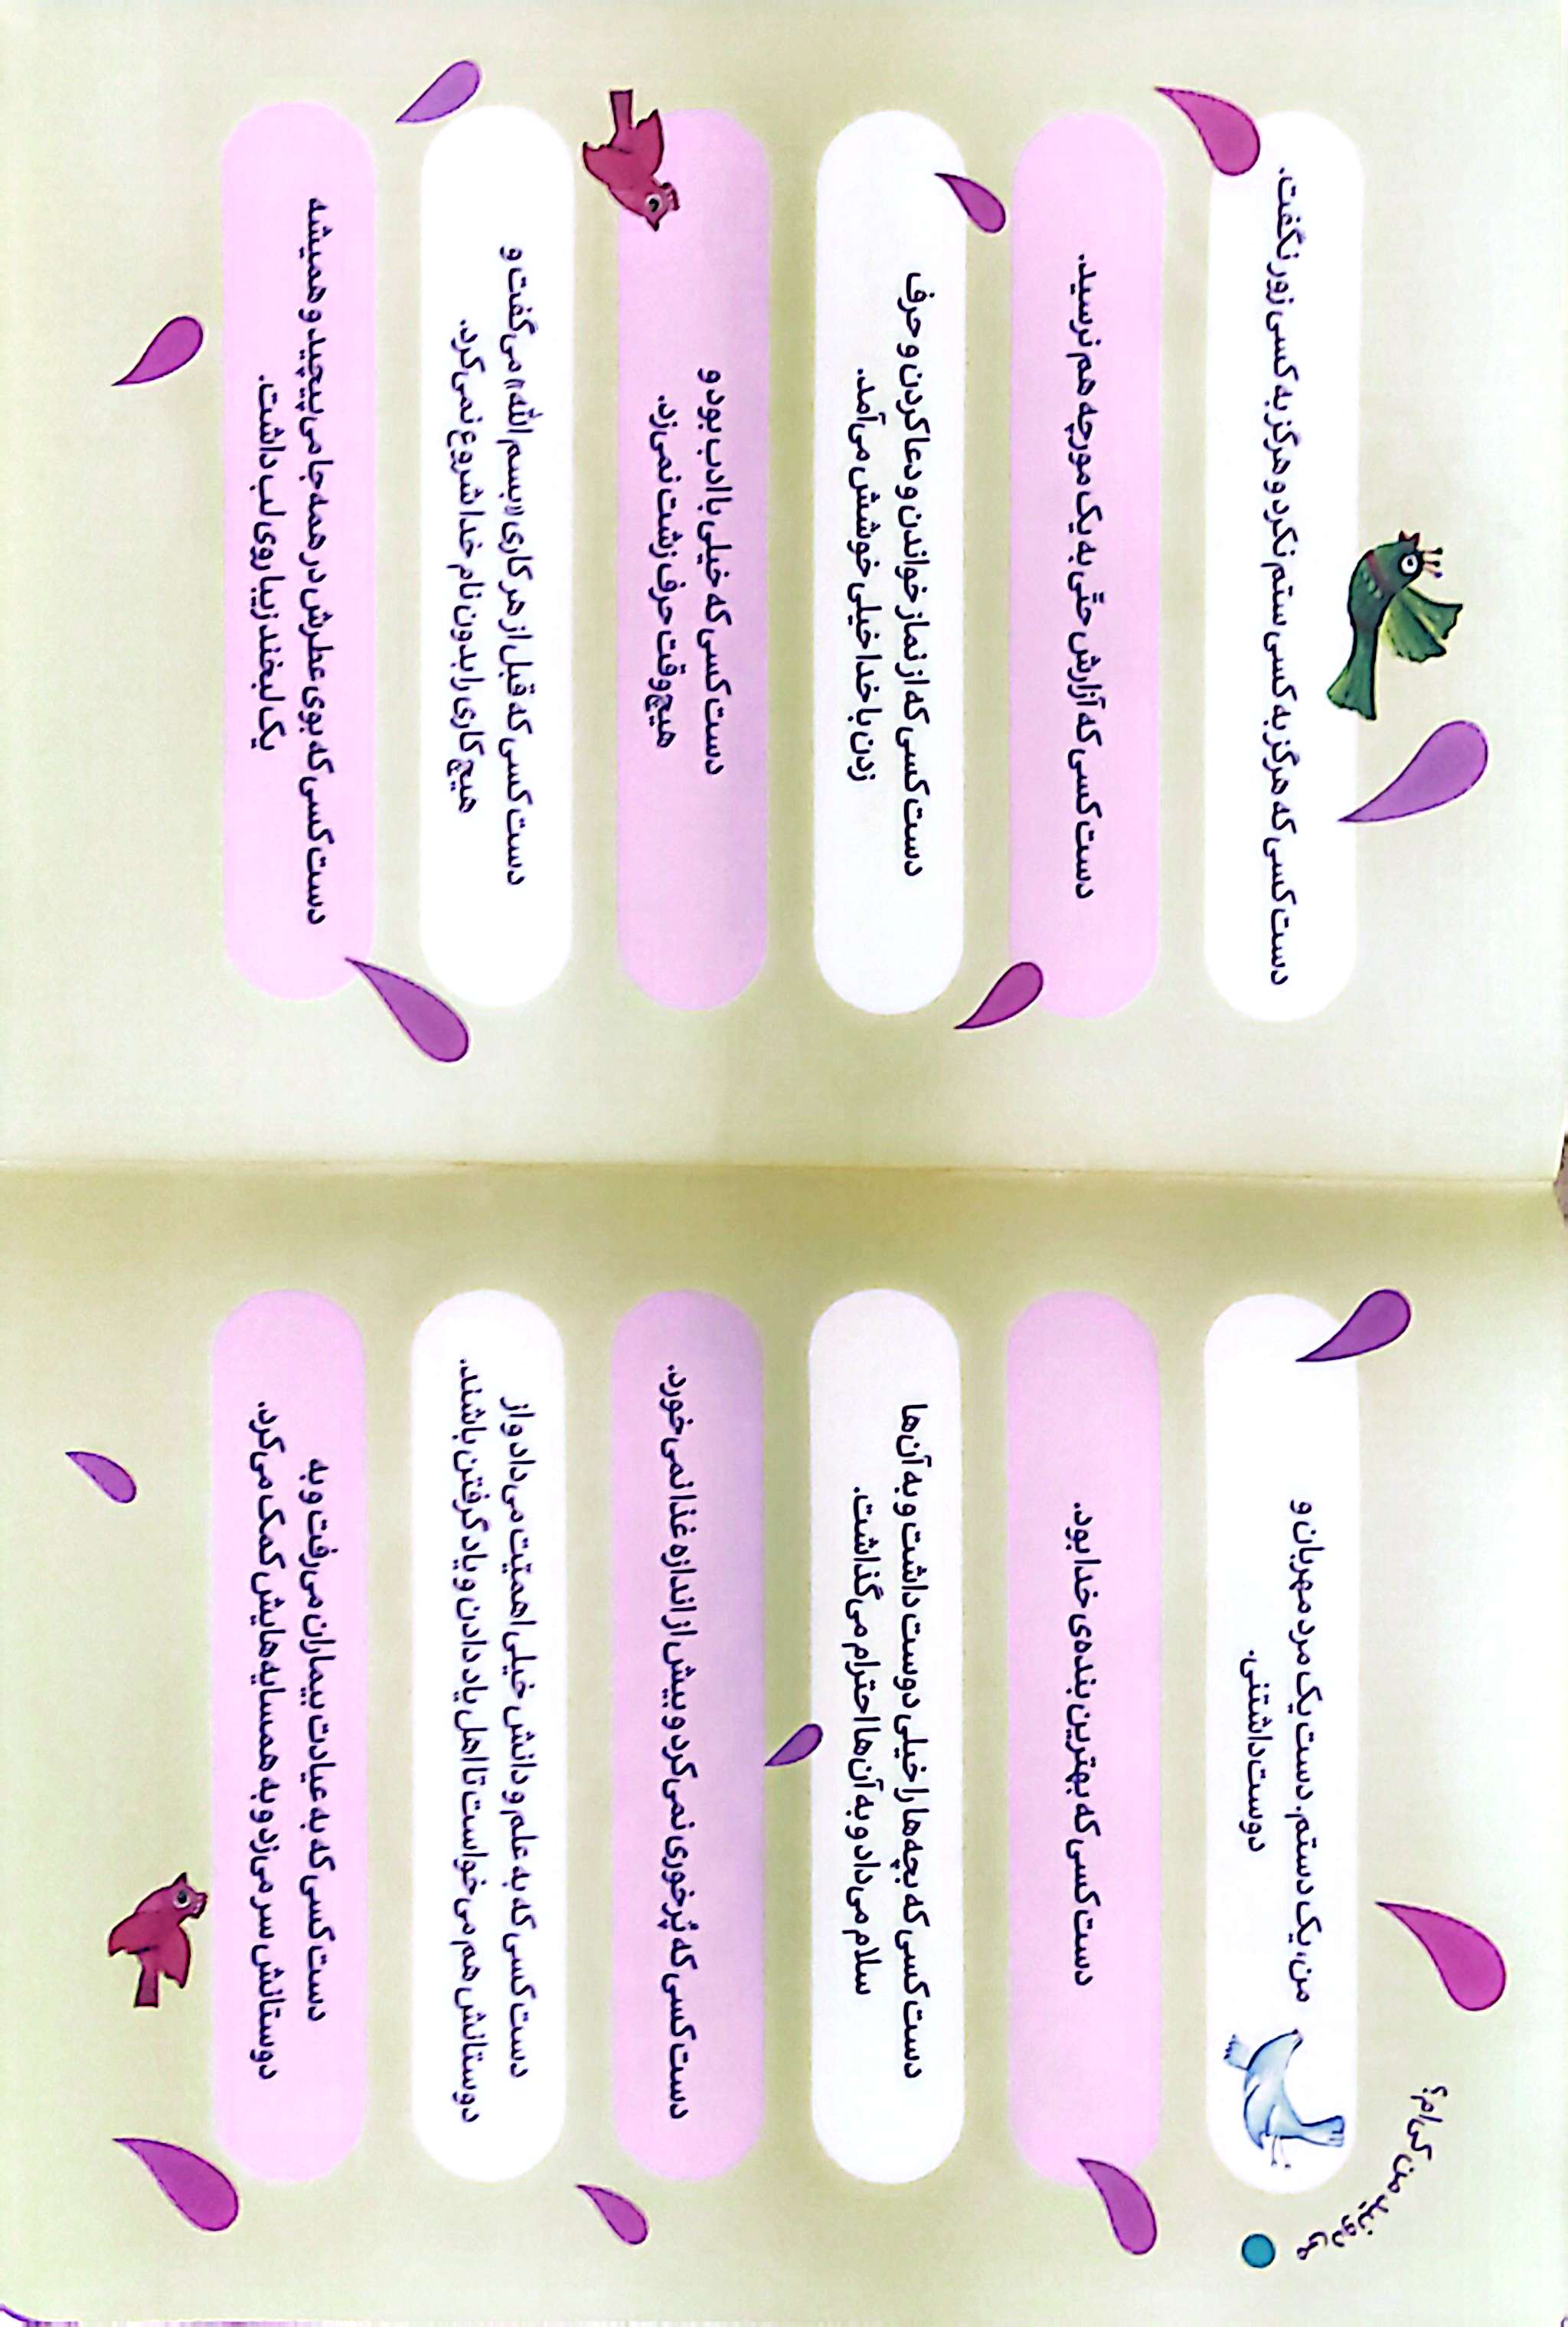 می‌دونید من کی‌ام؟
من، یک دستم. دست یک مرد مهربان و
دوست‌داشتنی.
دست کسی که بهترین بنده‌ی خدا بود.
دست کسی که بچه‌ها را خیلی دوست داشت و به آن‌ها
سلام می‌داد و به آن‌ها احترام می‌گذاشت.
دست کسی که پُرخوری نمی‌کرد و بیش از اندازه غذا نمی‌خورد.
دست کسی که به علم و دانش خیلی اهمیّت می‌داد و از
دوستانش هم می‌خواست تا اهل یاد دادن و یاد گرفتن باشند.
دست کسی که به عیادت بیماران می‌رفت و به
دوستانش سر می‌زد و به همسایه‌هایش کمک می‌کرد.
دست کسی که هرگز به کسی ستم نکرد و هرگز به کسی زور نگفت.
دست کسی که آزارش حتّی به یک مورچه هم نرسید.
دست کسی که از نماز خواندن و دعا کردن و حرف
زدن با خدا خیلی خوشش می‌آمد.
دست کسی که خیلی با ادب بود و
هیچ‌وقت حرف زشت نمی‌زد.
دست کسی که قبل از هر کاری «بسم الله» می‌گفت و
هیچ کاری را بدون نام خدا شروع نمی‌کرد.
دست کسی که بوی عطرش در همه جا می‌پیچید و همیشه
یک لبخند زیبا روی لب داشت.